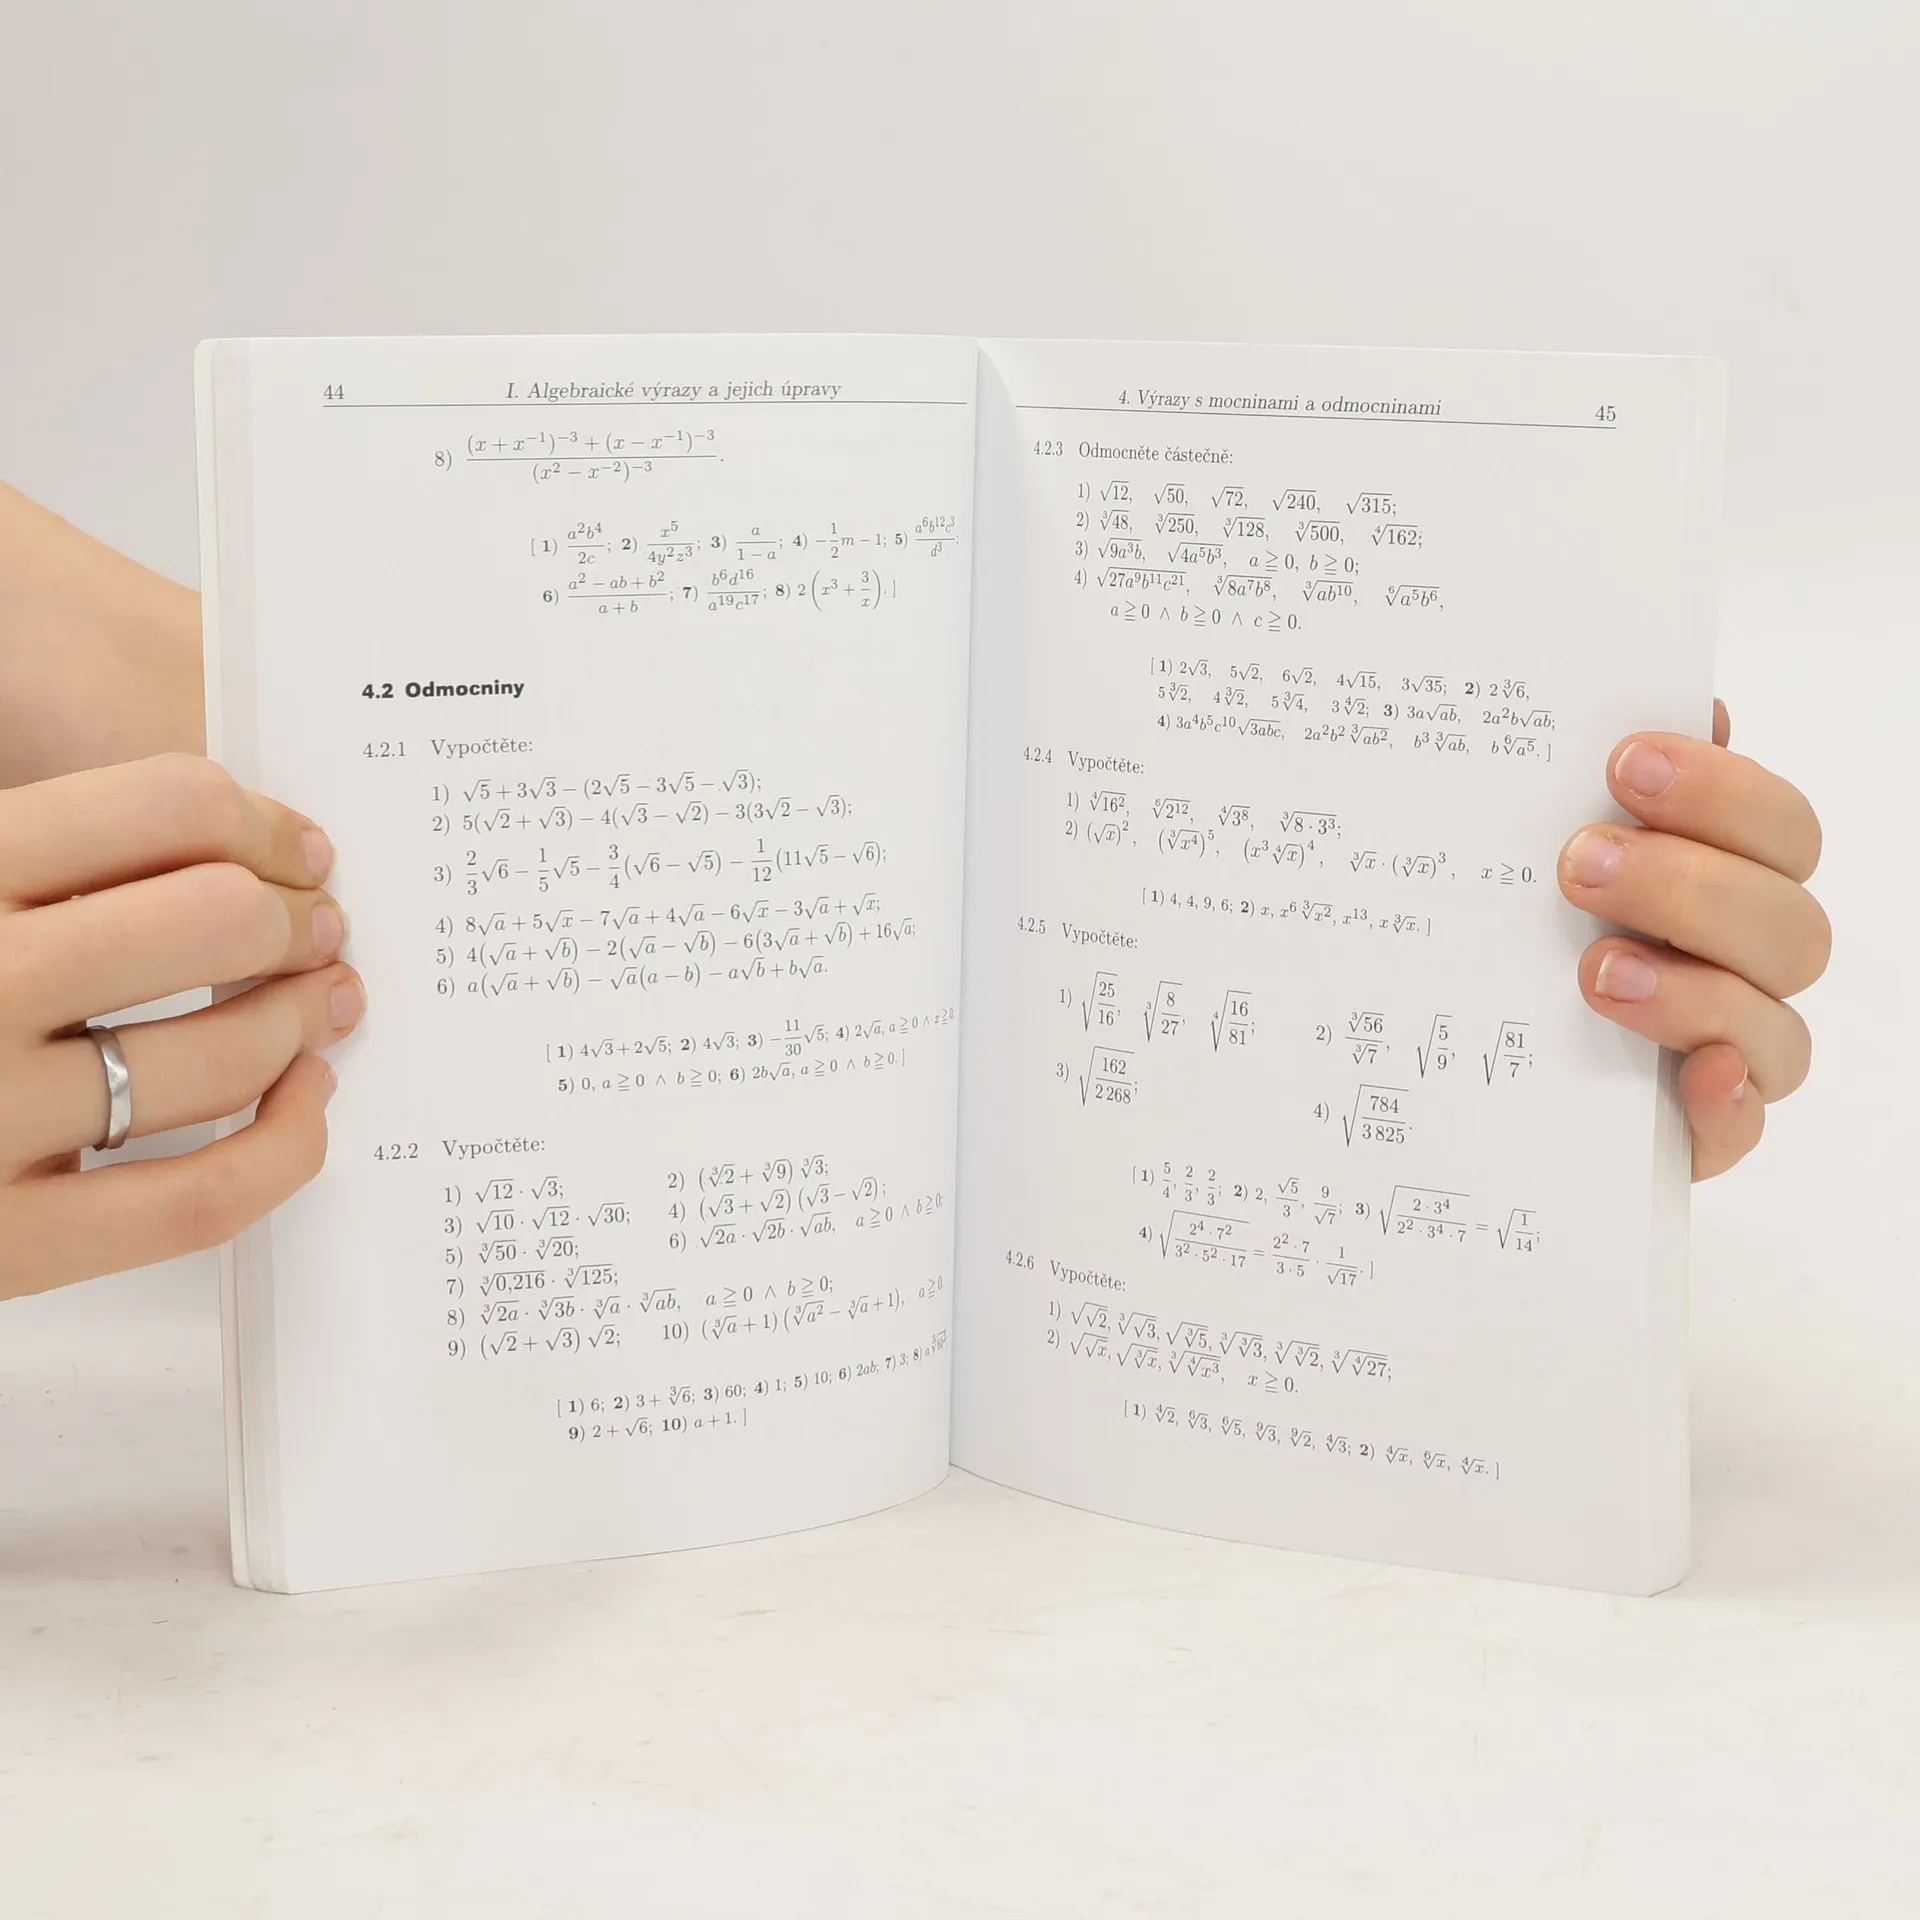 44 I. Algebraické výrazy a jejich úpravy
8) \frac{(x + x^{-1})^{-3} + (x - x^{-1})^{-3}}{(x^2 - x^{-2})^{-3}}.
[ 1) \frac{a^2b^4}{2c}; 2) \frac{x^5}{4y^2z^3}; 3) \frac{a}{1 - a}; 4) -\frac{1}{2}m - 1; 5) \frac{a^6b^{12}c^3}{d^3};
6) \frac{a^2 - ab + b^2}{a + b}; 7) \frac{b^6d^{16}}{a^{19}c^{17}}; 8) 2(x^3 + \frac{3}{x}). ]
4.2 Odmocniny
4.2.1 Vypočtěte:
1) √5 + 3√3 − (2√5 − 3√5 − √3);
2) 5(√2 + √3) − 4(√3 − √2) − 3(3√2 − √3);
3) \frac{2}{3}√6 − \frac{1}{5}√5 − \frac{3}{4}(√6 − √5) − \frac{1}{12}(11√5 − √6);
4) 8√a + 5√x − 7√a + 4√a − 6√x − 3√a + √x;
5) 4(√a + √b) − 2(√a − √b) − 6(3√a + √b) + 16√a;
6) a(√a + √b) − √a(a − b) − a√b + b√a.
[ 1) 4√3 + 2√5; 2) 4√3; 3) −\frac{11}{30}√5; 4) 2√a, a ≧ 0 ∧ x ≧ 0;
5) 0, a ≧ 0 ∧ b ≧ 0; 6) 2b√a, a ≧ 0 ∧ b ≧ 0. ]
4.2.2 Vypočtěte:
1) √12 · √3; 2) (∛2 + ∛9) ∛3;
3) √10 · √12 · √30; 4) (√3 + √2) (√3 − √2);
5) ∛50 · ∛20; 6) √2a · √2b · √ab, a ≧ 0 ∧ b ≧ 0;
7) ∛0,216 · ∛125;
8) ∛2a · ∛3b · ∛a · ∛ab, a ≧ 0 ∧ b ≧ 0;
9) (√2 + √3) √2; 10) (∛a + 1) (∛a² − ∛a + 1), a ≧ 0.
[ 1) 6; 2) 3 + ∛6; 3) 60; 4) 1; 5) 10; 6) 2ab; 7) 3; 8)
9) 2 + √6; 10) a + 1. ]
4. Výrazy s mocninami a odmocninami 45
4.2.3 Odmocněte částečně:
1) √12, √50, √72, √240, √315;
2) ∛48, ∛250, ∛128, ∛500, ∜162;
3) \sqrt{9a^3b}, \sqrt{4a^5b^3}, a ≧ 0, b ≧ 0;
4) \sqrt{27a^9b^{11}c^{21}}, \sqrt[3]{8a^7b^8}, \sqrt[3]{ab^{10}}, \sqrt[6]{a^5b^6},
a ≧ 0 ∧ b ≧ 0 ∧ c ≧ 0.
[ 1) 2√3, 5√2, 6√2, 4√15, 3√35; 2) 2∛6,
5∛2, 4∛2, 5∛4, 3∜2; 3) 3a√ab, 2a²b√ab;
4) 3a^4b^5c^{10}\sqrt{3abc}, 2a^2b^2\sqrt[3]{ab^2}, b^3\sqrt[3]{ab}, b\sqrt[6]{a^5}. ]
4.2.4 Vypočtěte:
1) \sqrt[4]{16^2}, \sqrt[6]{2^{12}}, \sqrt[4]{3^8}, \sqrt[3]{8 · 3^3};
2) (\sqrt{x})^2, (\sqrt[3]{x^4})^5, (x^3\sqrt[4]{x})^4, \sqrt[3]{x} · (\sqrt[3]{x})^3, x ≧ 0.
[ 1) 4, 4, 9, 6; 2) x, x^6\sqrt[3]{x^2}, x^{13}, x\sqrt[3]{x}. ]
4.2.5 Vypočtěte:
1) \sqrt{\frac{25}{16}}, \sqrt[3]{\frac{8}{27}}, \sqrt[4]{\frac{16}{81}}; 2) \frac{\sqrt[3]{56}}{\sqrt[3]{7}}, \sqrt{\frac{5}{9}}, \sqrt{\frac{81}{7}};
3) \sqrt{\frac{162}{2 268}}; 4) \sqrt{\frac{784}{3 825}}.
[ 1) \frac{5}{4}, \frac{2}{3}, \frac{2}{3}; 2) 2, \frac{\sqrt{5}}{3}, \frac{9}{\sqrt{7}}; 3) \sqrt{\frac{2 · 3^4}{2^2 · 3^4 · 7}} = \sqrt{\frac{1}{14}};
4) \sqrt{\frac{2^4 · 7^2}{3^2 · 5^2 · 17}} = \frac{2^2 · 7}{3 · 5} · \frac{1}{\sqrt{17}}. ]
4.2.6 Vypočtěte:
1) \sqrt{\sqrt{2}}, \sqrt[3]{\sqrt{3}}, \sqrt{\sqrt[3]{5}}, \sqrt[3]{\sqrt[3]{3}}, \sqrt[3]{\sqrt[3]{2}}, \sqrt[3]{\sqrt[4]{27}};
2) \sqrt{\sqrt{x}}, \sqrt{\sqrt[3]{x}}, \sqrt[3]{\sqrt[4]{x^3}}, x ≧ 0.
[ 1) \sqrt[4]{2}, \sqrt[6]{3}, \sqrt[6]{5}, \sqrt[9]{3}, \sqrt[9]{2}, \sqrt[4]{3}; 2) \sqrt[4]{x}, \sqrt[6]{x}, \sqrt[4]{x}. ]